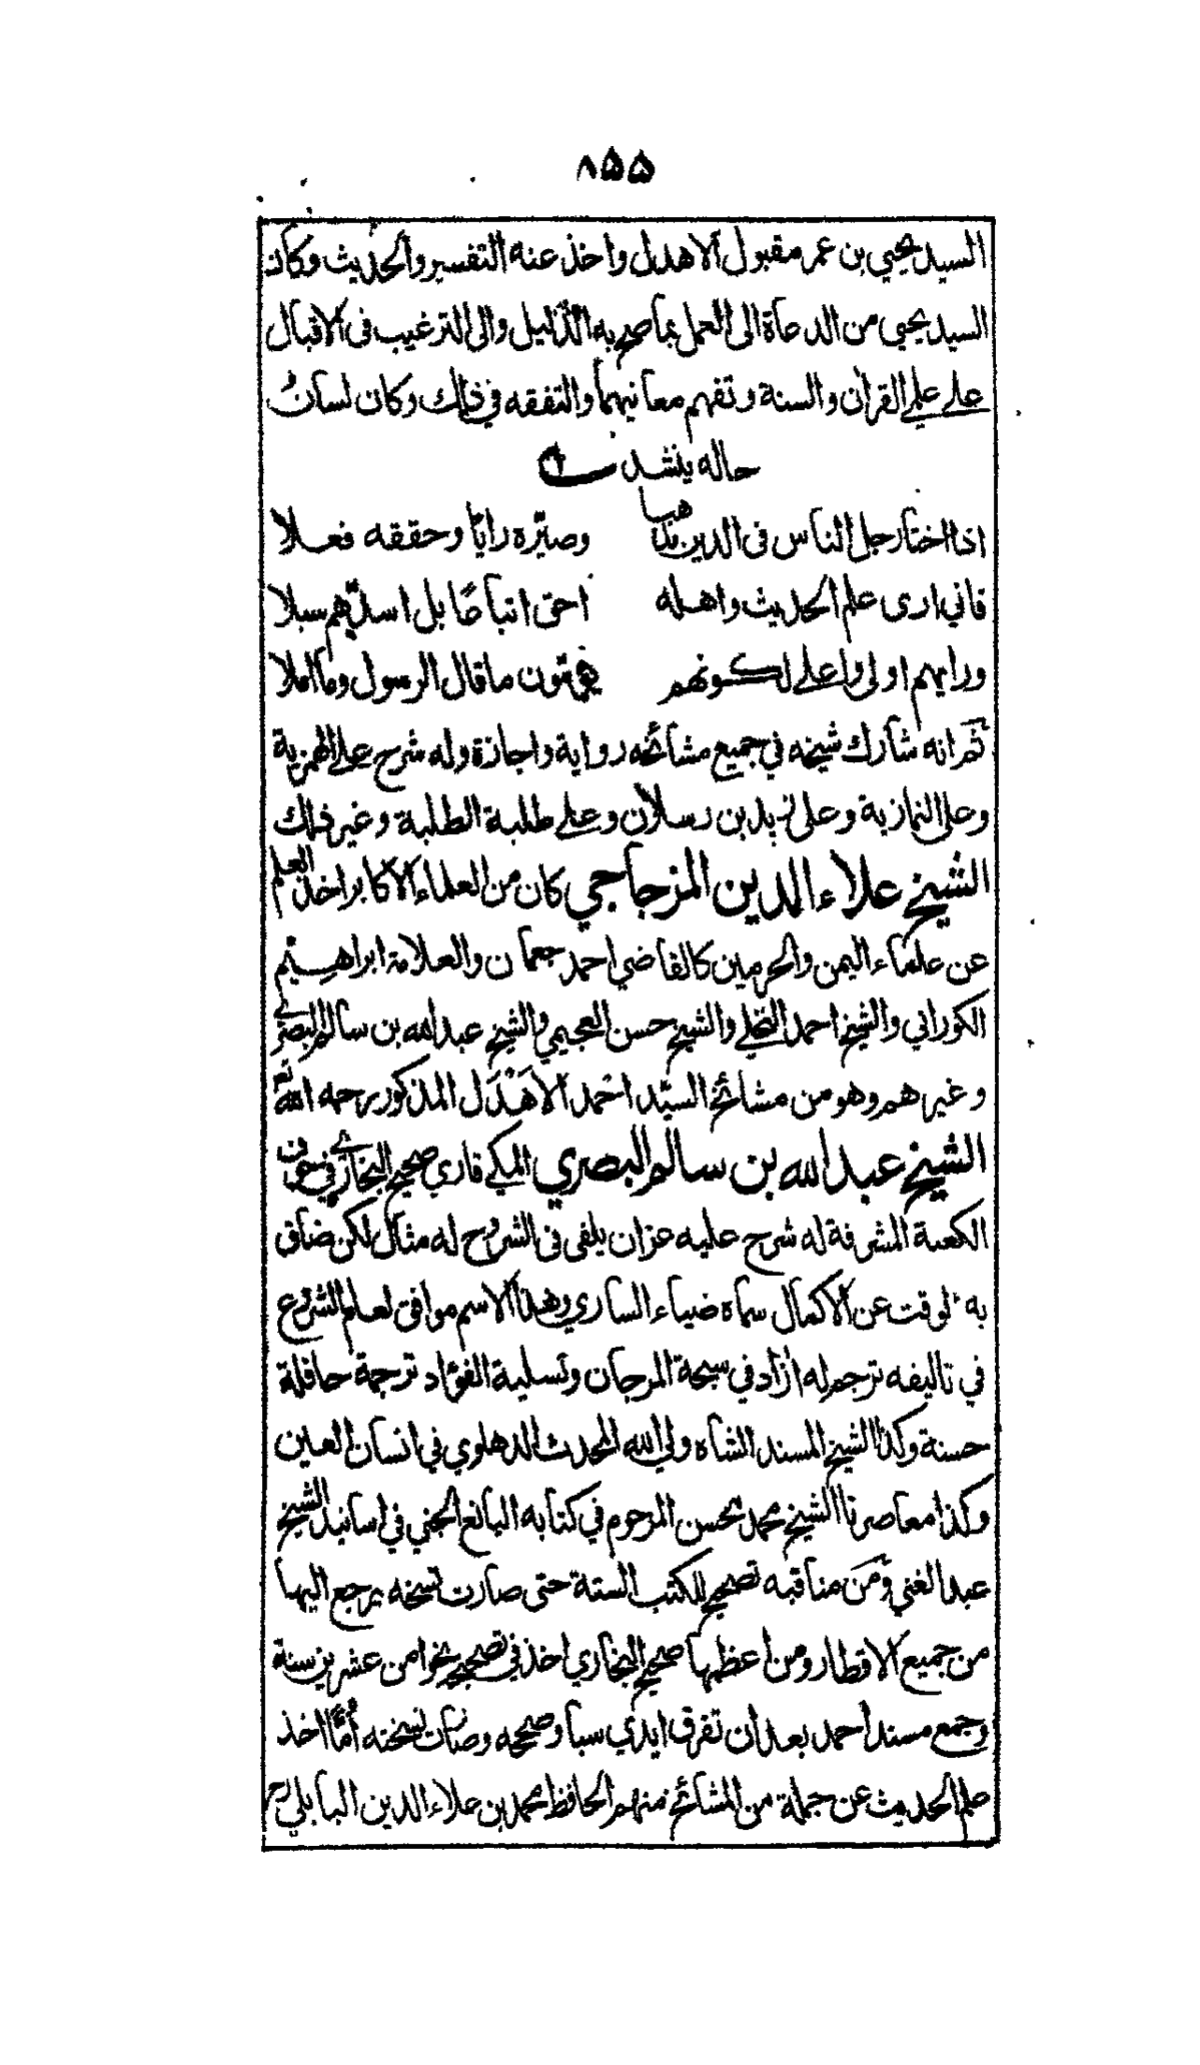 ۸۵۵
السيد يحيي بن عمر مقبول الاهدل واخذ عنه التفسير والحديث وكان
السيد يحيى من الدعاة الى العمل بما صح به الدليل والى الترغيب فى الاقبال
على علمي القرآن والسنة وتفهم معانيهما والتفقه في ذلك وكان لسان
حاله ينشد
اذا اختار جل الناس فى الدين مذهبا وصيّره رايًا وحققه فعلا
فاني ارى علم الحديث واهله احق اتباعًا بل اسدّهم سبلا
ورايهم اولى واعلى لكونهم يؤمّون ما قال الرسول وما املا
ثم انه شارك شيخه في جميع مشائخه رواية واجازة وله شرح على الهمزية
وعلى النمازية وعلى زبد بن رسلان وعلى طلبة الطلبة وغير ذلك
الشيخ علاء الدين المزجاجي كان من العلماء الاكابر اخذ العلم
عن علماء اليمن والحرمين كالقاضي احمد جعمان والعلامة ابراهيم
الكوراني والشيخ احمد النخلي والشيخ حسن العجيمي والشيخ عبدالله بن سالم البصري
وغيرهم وهو من مشائخ السيّد احمد الاهدل المذكور رحمه الله تع
الشيخ عبدالله بن سالم البصري المكي قاري صحيح البخاري في جوف
الكعبة المشرفة له شرح عليه عزان يلفى فى الشروح له مثال لكن ضاق
به الوقت عن الاكمال سماه ضياء الساري وهذا الاسم موافق لعام الشروع
في تاليفه ترجم له ازاد في سبحة المرجان وتسلية الفؤاد ترجمة حافلة
حسنة وكذا الشيخ المسند الشاه ولي الله المحدث الدهلوي في انسان العين
وكذا معاصرنا الشيخ محمد محسن المرحوم في كتابه اليانع الجني في اسانيد الشيخ
عبد الغني ومن مناقبه تصحيح للكتب الستة حتى صارت نسخه يرجع اليها
من جميع الاقطار ومن اعظمها صحيح البخاري اخذ في تصحيحه نحوا من عشرين سنة
وجمع مسند احمد بعد ان تفرق ايدي سبا وصححه وصارت نسخته أمًّا اخذ
علم الحديث عن جملة من المشائخ منهم الحافظ محمد بن علاء الدين البابلي رح